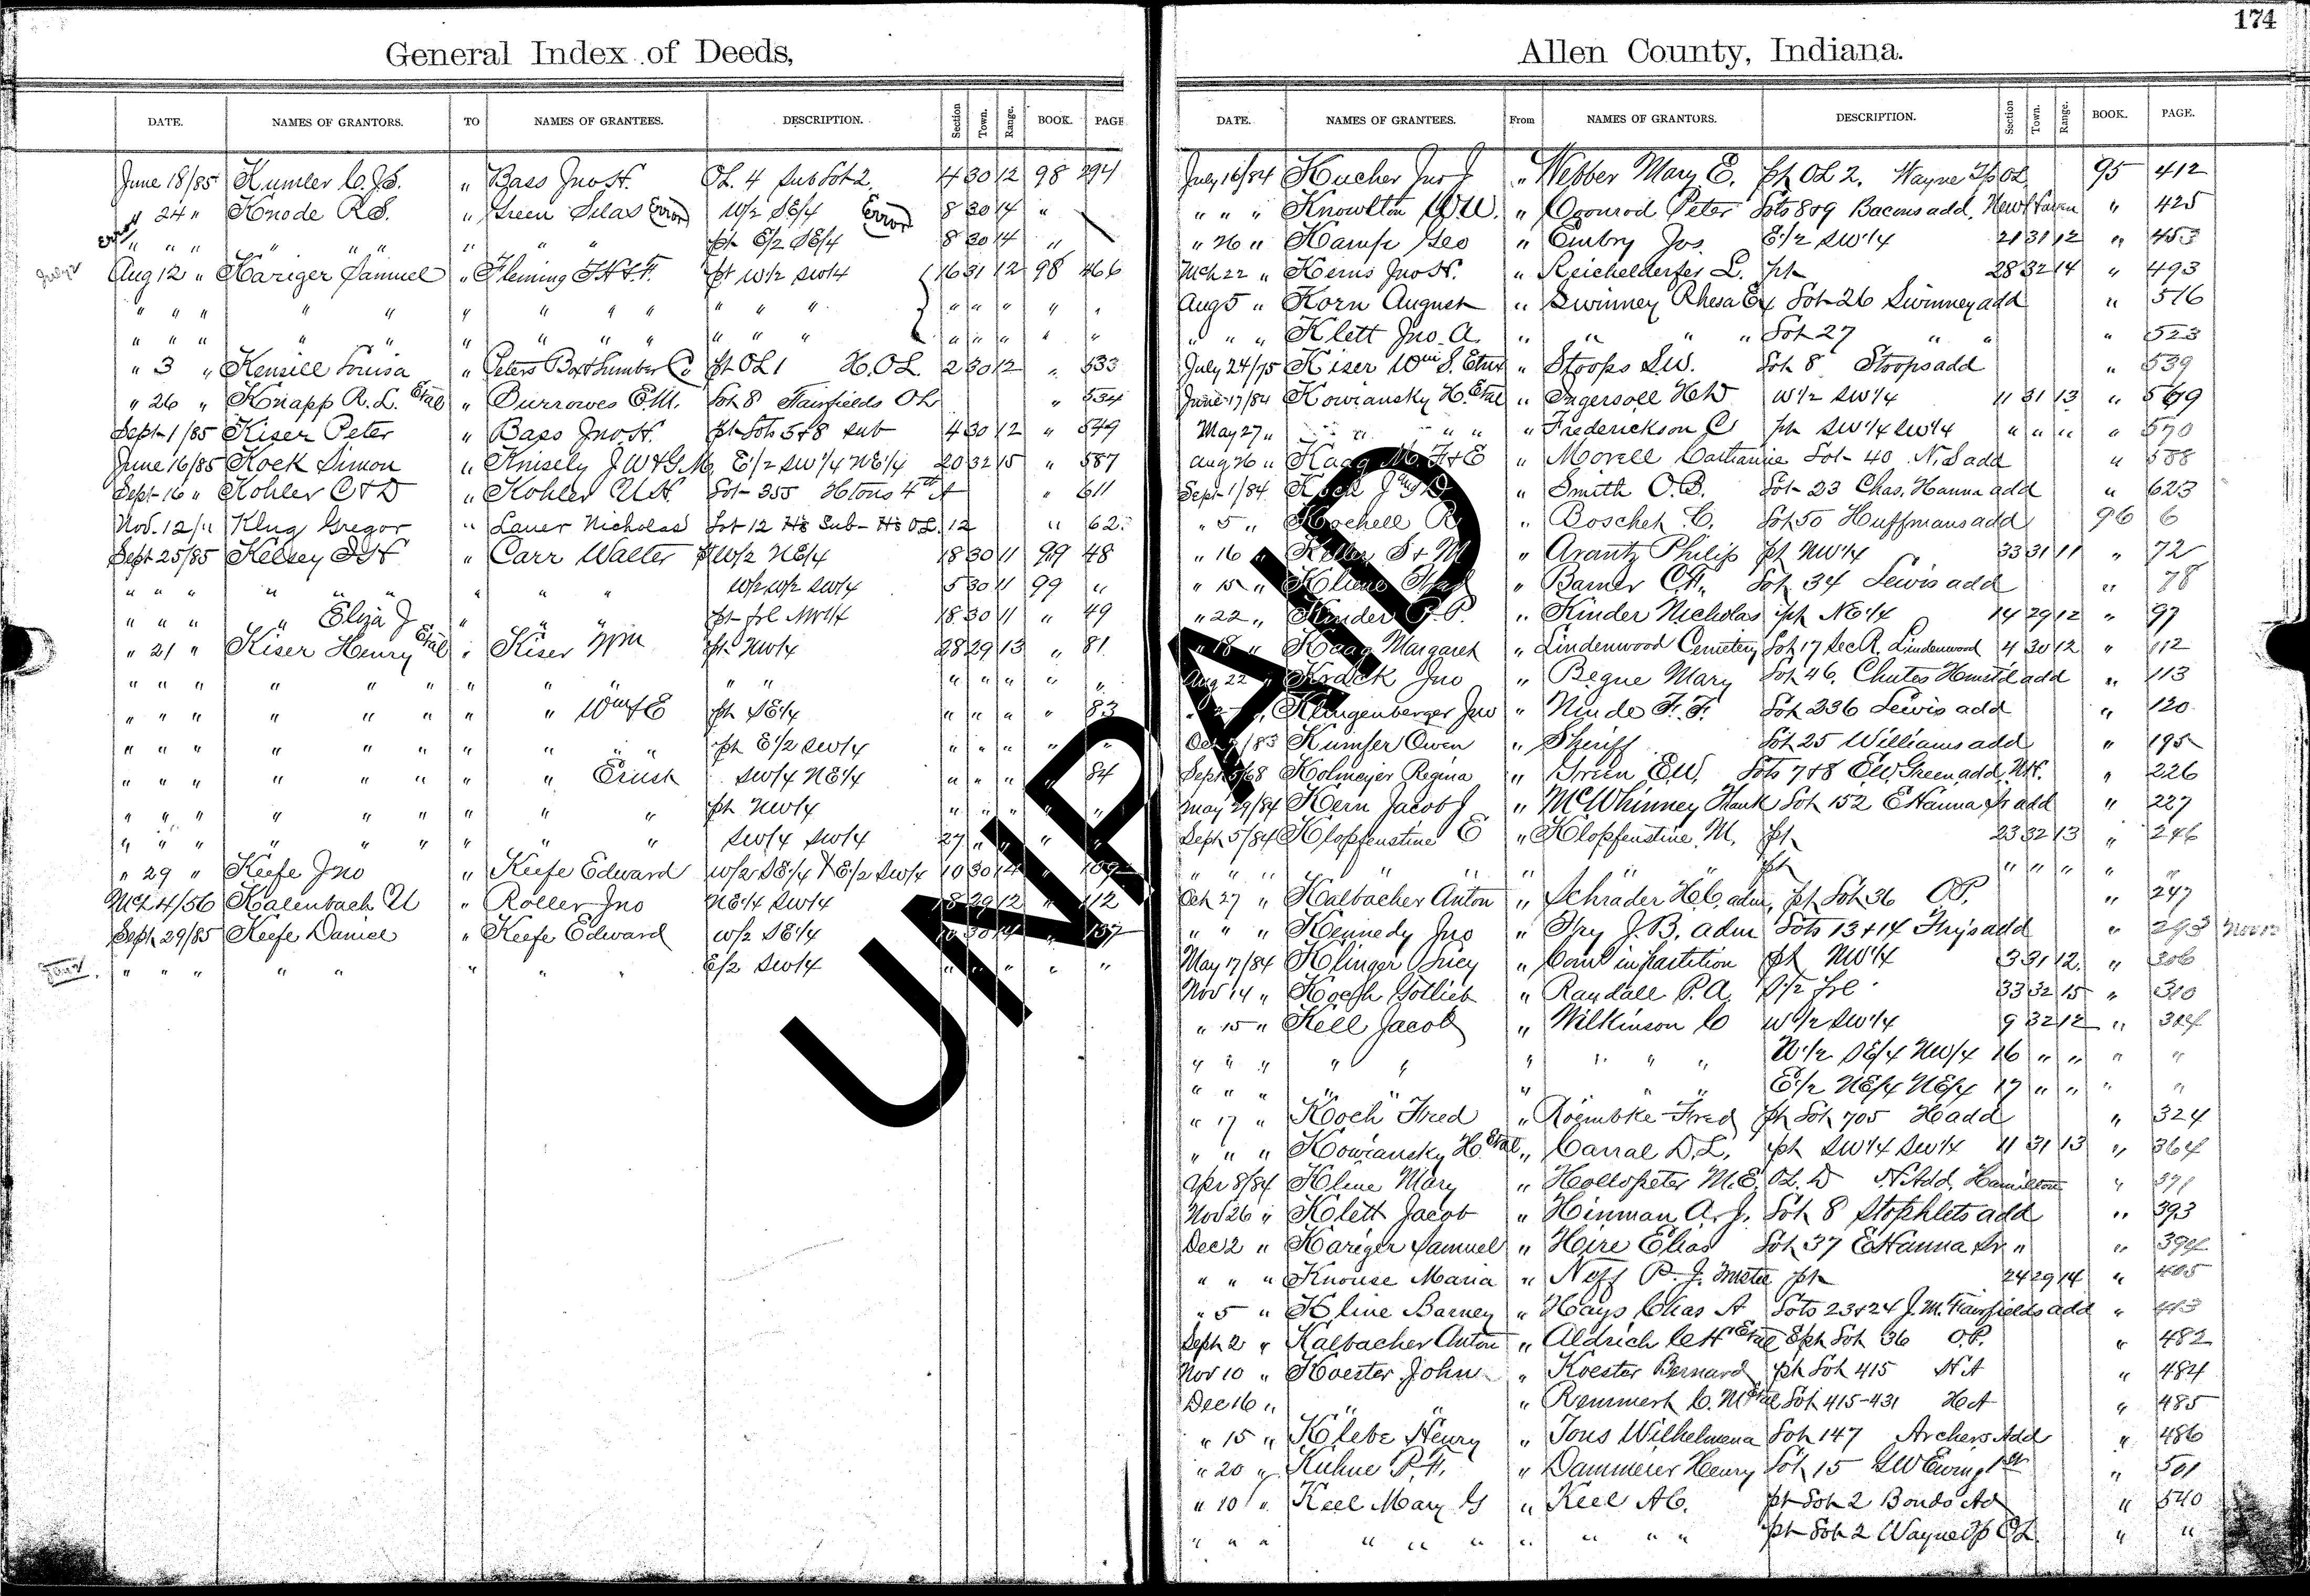 174
General Index of Deeds,
DATE. NAMES OF GRANTORS. TO NAMES OF GRANTEES. DESCRIPTION. Section Town. Range. BOOK. PAGE
June 18/85 Kumler C. J. S. " Bass Jno H. OL. 4 Sub Lot 2. 4 30 12 98 294
" 24 " Knode R. S. " Green Silas Error W/2 SE/4 Error 8 30 14 "
Error " " " " " " " " " pt E/2 SE/4 8 30 14 "
Aug 12 " Kariger Samuel " Fleming pt W/2 SW/4 16 31 12 98 466
" " " " " " " " " " " " " " " " "
" " " " " " " " " " " " " " " " "
" 3 " Kensill Louisa " Peters Box & Lumber Co pt OL 1 H. OL. 2 30 12 " 533
" 26 " Knapp R. L. Etal " Burrowes E. M. Lot 8 Fairfields OL " 534
Sept 1/85 Kiser Peter " Bass Jno H. pt Lots 5+8 Sub 4 30 12 " 549
June 16/85 Kock Simon " Knisely J W & G M. E1/2 SW1/4 NE1/4 20 32 15 " 587
Sept 16 " Kohler C & D " Kohler Lot 355 4th A " 611
Nov. 12/" Klug Gregor " Lauer Nicholas Lot 12 Hs Sub- Hs OL. 12 " 62
Sept 25/85 Kelsey " Carr Walter W/2 NE/4 18 30 11 99 48
" " " " " " " " W/2 W/2 SW/4 5 30 11 99 "
" " " " Eliza J " " " pt frl NW/4 18 30 11 " 49
" 21 " Kiser Henry Etal " Kiser Wm pt NW/4 28 29 13 " 81
" " " " " " " " " " " " " " " "
" " " " " " " " Wm & E pt SE/4 " " " " 83
" " " " " " " " " " pt E/2 SW/4 " " " " "
" " " " " " " " Ernst SW/4 NE/4 " " " " 84
" " " " " " " " " pt NW/4 " " " " "
" " " " " " " " " SW/4 SW/4 27 " " " "
" 29 " Keefe Jno " Keefe Edward W/2 SE/4 & E/2 SW/4 10 30 14 " 109
Mch 4/56 Kalenbach U " Roller Jno NE/4 SW/4 18 29 12 " 112
Sept 29/85 Keefe Daniel " Keefe Edward W/2 SE/4 10 30 14 " 137
" " " " " " " " E/2 SW/4 " " " " "
Allen County, Indiana.
DATE. NAMES OF GRANTEES. From NAMES OF GRANTORS. DESCRIPTION. Section Town. Range. BOOK. PAGE.
July 16/84 Kucher Jno J " Webber Mary E. pt OL 2. Wayne Tp OL. 95 412
" " " Knowlton W W. " Oconrod Peter Lots 8+9 Bacons add. New Haven " 425
" 26 " Kampe Geo " Embry Jos E1/2 SW1/4 21 31 12 " 453
Mch 22 " Kerns Jno H. " Reichelderfer L. pt 28 32 14 " 493
Aug 5 " Korn August " Swinney Rhesa Ex Lot 26 Swinney add " 516
" " " Klett Jno. A. " " " " Lot 27 " " " 523
July 24/75 Kiser Wm S. Etux " Stoops S. W. Lot 8 Stoops add " 539
June 17/84 Kowiansky H. Etal " Ingersoll H W W1/2 SW1/4 11 31 13 " 569
May 27 " " " " " " Frederickson C pt SW1/4 SW1/4 " " " " 570
Aug 26 " Kaag M. F & E " Morell Catharine Lot 40 N. S add " 588
Sept 1/84 Koch " Smith O. B. Lot 23 Chas. Hanna add " 623
" 5 " Kochell R " Boschet C. Lot 50 Huffmans add 96 6
" 16 " Keller S + M " Arantz Philip pt NW1/4 33 31 11 " 72
" 15 " Kliene " Barner C. F. Lot 34 Lewis add " 78
" 22 " Kinder G. P. " Kinder Nicholas pt NE1/4 14 29 12 " 97
" 18 " Kaag Margaret " Lindenwood Cemetery Lot 17 Sec R. Lindenwood 4 30 12 " 112
Aug 22 " Krack Jno " Begue Mary Lot 46. Chutes Hmstd add " 113
" Klingenberger Jno " Ninde F. F. Lot 236 Lewis add " 120
Oct /83 Kumfer Owen " Sheriff Lot 25 Williams add " 195
Sept 5/68 Kolmeyer Regina " Green E. W. Lots 7+8 E W Green add N H. " 226
May 29/84 Kern Jacob J " McWhinney Frank Lot 152 E Hanna Jr add " 227
Sept 5/84 Klopfenstine E " Klopfenstine M. pt 23 32 13 " 246
" " " " " " " " pt " " " " "
Oct 27 " Kalbacher Anton " Schrader H. C. adm. pt Lot 36 OP. " 247
" " " Kennedy Jno " Fry J. B. adm Lots 13+14 Fry's add " 293 Nov 12
May 17/84 Klinger Lucy " Com in partition pt NW1/4 3 31 12. " 306
Nov 14 " Koegh Gotlieb " Randall P. A. S1/2 frl 33 32 15 " 310
" 15 " Kell Jacob " Wilkinson C W1/2 SW1/4 9 32 12 " 324
" " " " " " " " " W1/2 SE/4 NW/4 16 " " " "
" " " " " " " " E1/2 NE/4 NE/4 17 " " " "
" 17 " Koch Fred " Roembke Fred pt Lot 705 H add " 324
" " " Kowiansky H. Etal " Carral D. L. pt SW1/4 SW1/4 11 31 13 " 364
Apr 8/84 Kline Mary " Hollopeter M. E. OL. D N. Add. Hamilton " 371
Nov 26 " Klett Jacob " Hinman A. J. Lot 8 Stophlets add " 393
Dec 2 " Kariger Samuel " Hire Elias Lot 37 E Hanna Sr. " " 394
" " " Knouse Maria " Neff P. J. Trustee pt 24 29 14 " 405
" 5 " Kline Barney " Hays Chas A Lots 23+24 J. M. Fairfields add " 443
Sept 2 " Kalbacher Anton " Aldrich C H Etal E pt Lot 36 O.P. " 482
Nov 10 " Koester John " Koester Bernard pt Lot 415 H A " 484
Dec 16 " " " " Remmert C. M Etal Lot 415-431 H A " 485
" 15 " Klebe Henry " Tons Wilhelmena Lot 147 Archers Add " 486
" 20 " Kuhne P. F. " Dammeier Henry Lot 15 G W Ewing 1st " 501
" 10 " Keel Mary G " Keel A C. pt Lot 2 Bonds Ad " 540
" " " " " " " " " " pt Lot 2 Wayne Tp OL " "
UNPAID